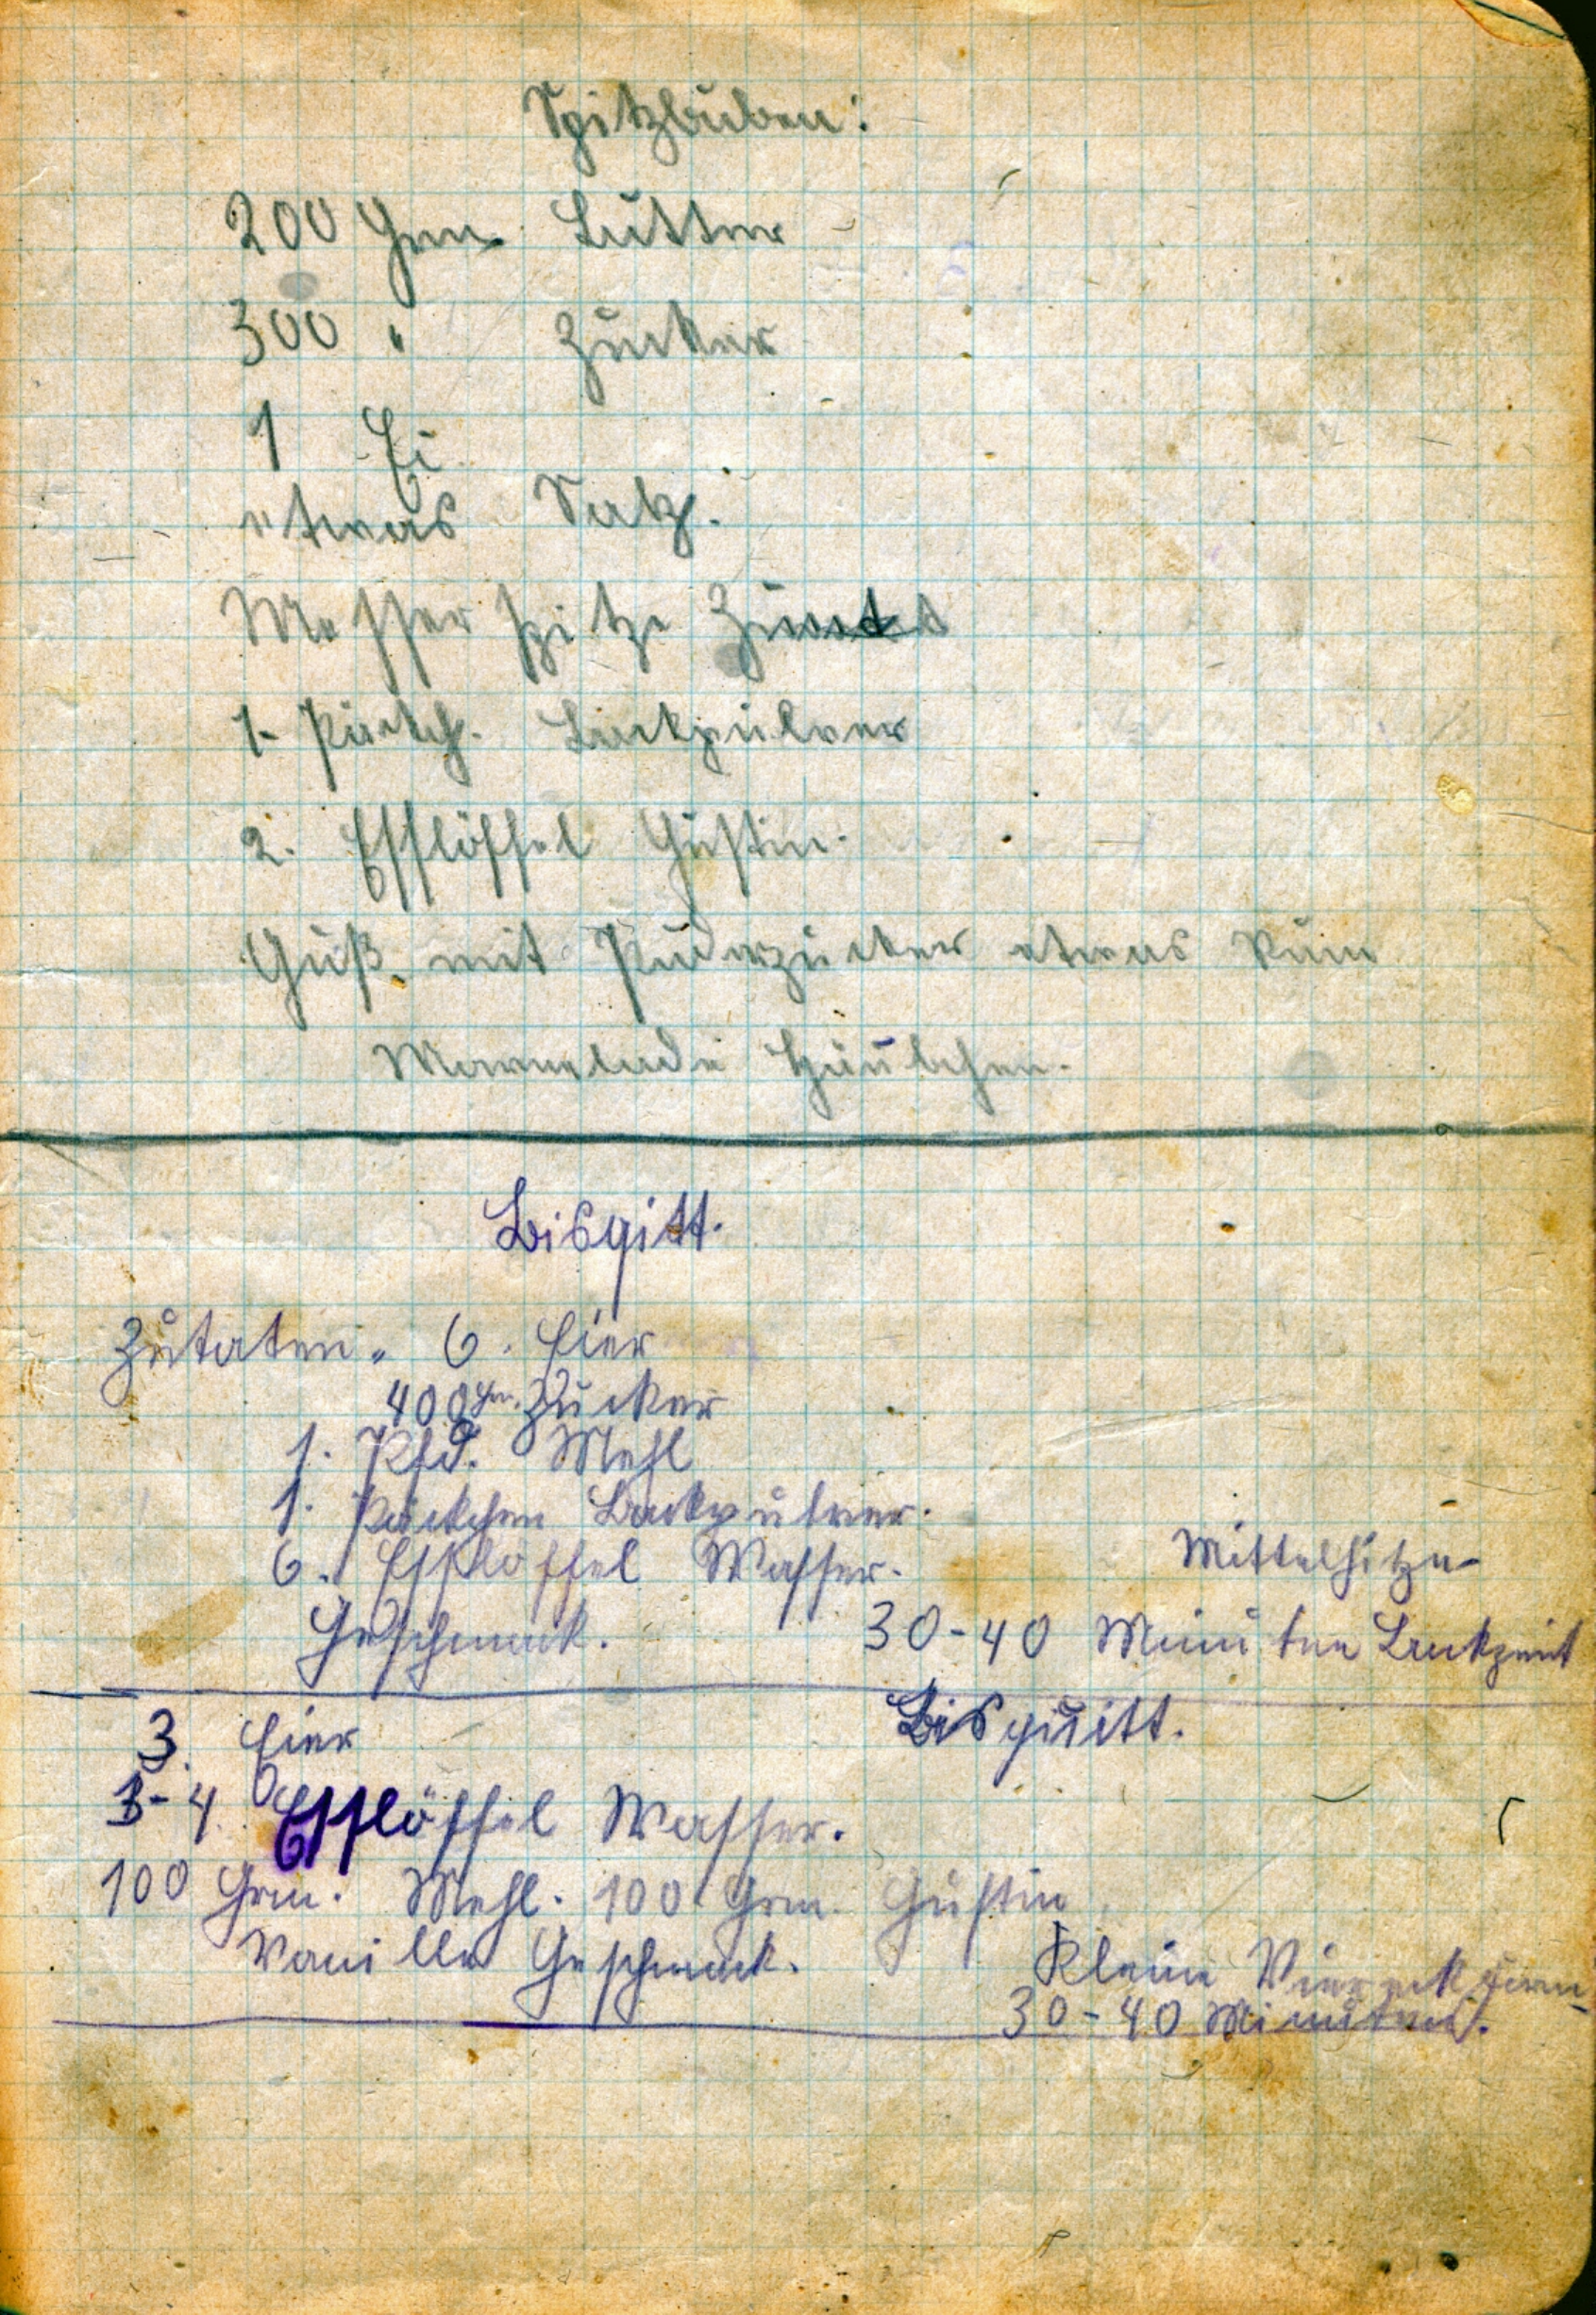 Spitzbuben:
200 Grm. Butter
300 " Zucker
1 Ei
etwas Salz.
Messerspitze Zimt
1. Päckch. Backpulver
2. Esslöffel Gustin.
Guß. mit Puderzucker etwas Rum
Marmelade
Bisgitt.
Zutaten. 6. Eier
400 Grm. Zucker
1. Pfd. Mehl
1. Päckchen Backpulver.
6. Esslöffel Wasser.
Mittelhitze
Geschmack.
30-40 Minuten Backzeit
Bisquitt.
3. Eier
3-4. Esslöffel Wasser.
100 Grm. Mehl. 100 Grm. Gustin
Vanille Geschmack.
Kleine Viereckform
30-40 Minuten.